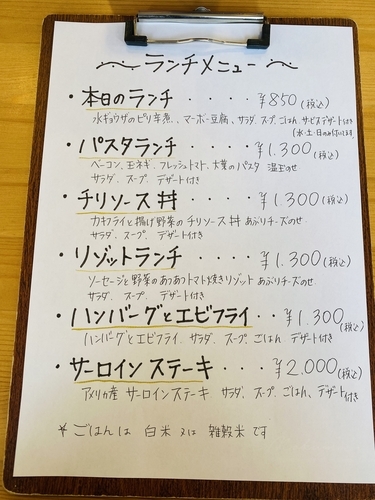 ランチメニュー
・本日のランチ ・・・・ ¥850(税込)
水ギョウザのピリ辛煮、マーボー豆腐、サラダ、スープ、ごはん、サービスデザート付き
(水・土・日のみ付いてます
・パスタランチ ・・・・ ¥1,300(税込)
ベーコン、玉ネギ、フレッシュトマト、大葉のパスタ 温玉のせ
サラダ、スープ、デザート付き
・チリソース丼 ・・・・ ¥1,300(税込)
カキフライと揚げ野菜のチリソース丼 あぶりチーズのせ
サラダ、スープ、デザート付き
・リゾットランチ ・・・・ ¥1,300(税込)
ソーセージと野菜のあつあつトマト焼きリゾット あぶりチーズのせ
サラダ、スープ、デザート付き
・ハンバーグとエビフライ ・・ ¥1,300(税込)
ハンバーグとエビフライ、サラダ、スープ、ごはん、デザート付き
・サーロインステーキ ・・・ ¥2,000(税込)
アメリカ産 サーロインステーキ サラダ、スープ、ごはん、デザート付き
* ごはんは 白米 又は 雑穀米です